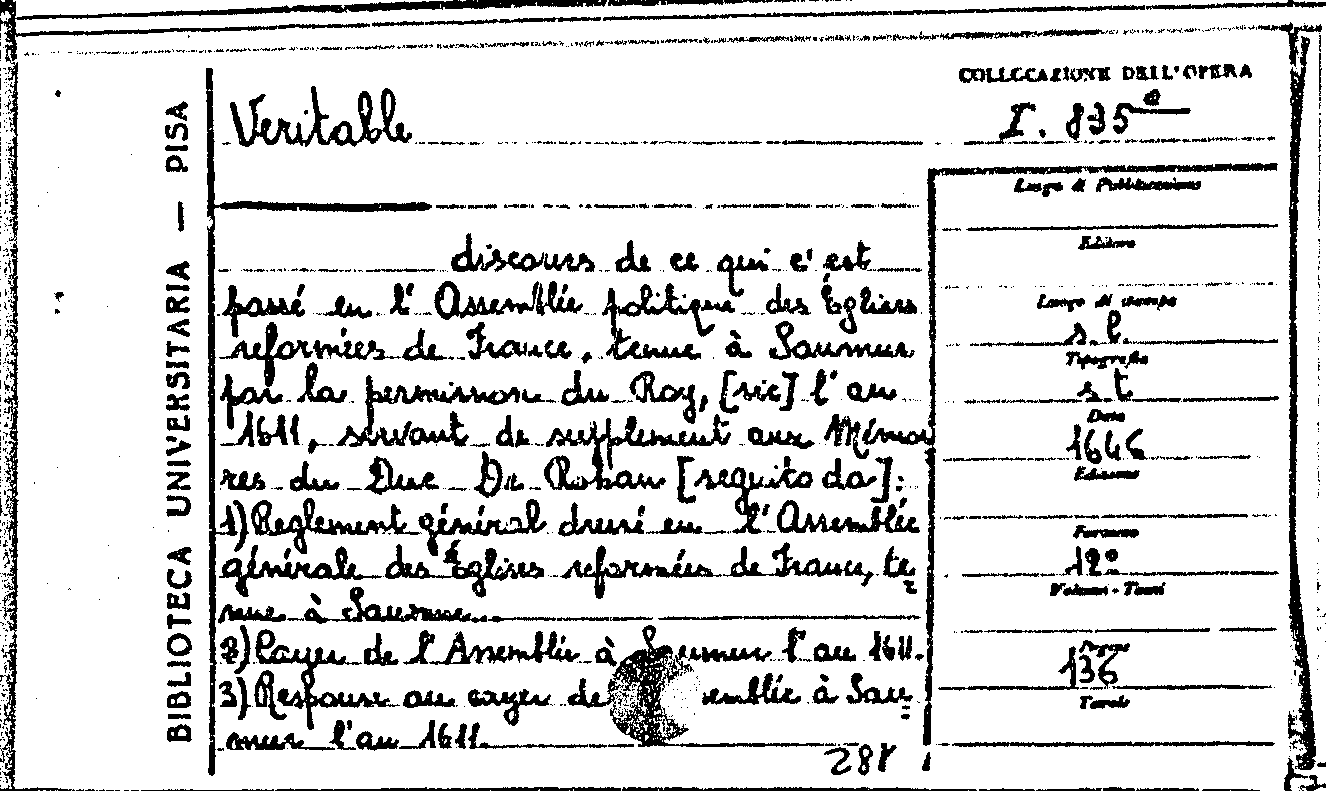 BIBLIOTECA UNIVERSITARIA — PISA
COLLOCAZIONE DELL'OPERA
I. 835
Veritable
discours de ce qui c'est
passé en l'Assemblée politique des Églises
reformées de France, tenue à Saumur
par la permission du Roy, [sic] l'an
1611, servant de supplement aux Mémoi
res du Duc De Rohan [seguito da]:
1) Reglement général dressé en l'Assemblée
générale des Églises reformées de France, te
nue à Saumur...
2) Cayer de l'Assemblée à Saumur l'an 1611.
3) Response au cayer de semblée à Sau
mur l'an 1611.
Luogo di Pubblicazione
Editore
Luogo di stampa
s.l.
Tipografia
s.t.
Data
1646
Edizione
Formato
12°
Volumi - Tomi
Pagine
136
Tavole